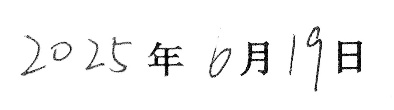 2025年6月19日